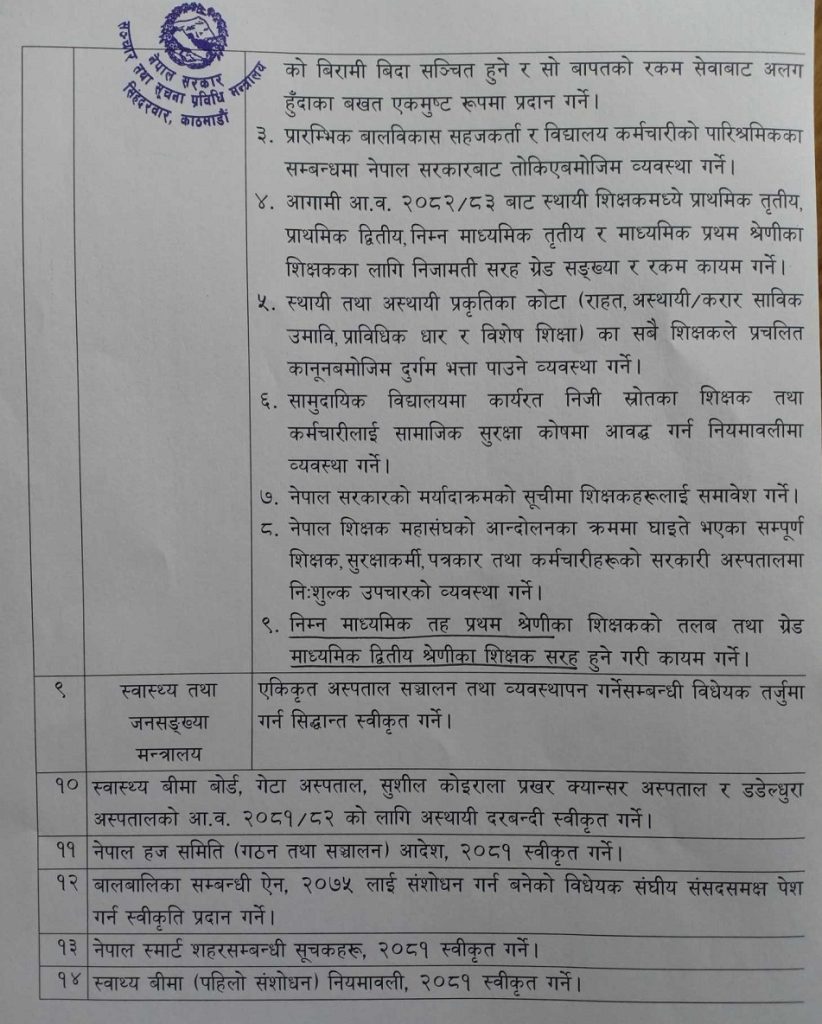 नेपाल सरकार
सञ्चार तथा सूचना प्रविधि मन्त्रालय
सिंहदरवार, काठमाडौं
को बिरामी बिदा सञ्चित हुने र सो बापतको रकम सेवाबाट अलग
हुँदाका बखत एकमुष्ट रूपमा प्रदान गर्ने।
३. प्रारम्भिक बालविकास सहजकर्ता र विद्यालय कर्मचारीको पारिश्रमिकका
सम्बन्धमा नेपाल सरकारबाट तोकिएबमोजिम व्यवस्था गर्ने।
४. आगामी आ.व. २०८२/८३ बाट स्थायी शिक्षकमध्ये प्राथमिक तृतीय,
प्राथमिक द्वितीय, निम्न माध्यमिक तृतीय र माध्यमिक प्रथम श्रेणीका
शिक्षकका लागि निजामती सरह ग्रेड सङ्ख्या र रकम कायम गर्ने।
५. स्थायी तथा अस्थायी प्रकृतिका कोटा (राहत, अस्थायी/करार साविक
उमावि, प्राविधिक धार र विशेष शिक्षा) का सबै शिक्षकले प्रचलित
कानूनबमोजिम दुर्गम भत्ता पाउने व्यवस्था गर्ने।
६. सामुदायिक विद्यालयमा कार्यरत निजी स्रोतका शिक्षक तथा
कर्मचारीलाई सामाजिक सुरक्षा कोषमा आवद्ध गर्न नियमावलीमा
व्यवस्था गर्ने।
७. नेपाल सरकारको मर्यादाक्रमको सूचीमा शिक्षकहरूलाई समावेश गर्ने।
८. नेपाल शिक्षक महासंघको आन्दोलनका क्रममा घाइते भएका सम्पूर्ण
शिक्षक, सुरक्षाकर्मी, पत्रकार तथा कर्मचारीहरूको सरकारी अस्पतालमा
निःशुल्क उपचारको व्यवस्था गर्ने।
९. निम्न माध्यमिक तह प्रथम श्रेणीका शिक्षकको तलब तथा ग्रेड
माध्यमिक द्वितीय श्रेणीका शिक्षक सरह हुने गरी कायम गर्ने।
९ स्वास्थ्य तथा एकिकृत अस्पताल सञ्चालन तथा व्यवस्थापन गर्नेसम्बन्धी विधेयक तर्जुमा
जनसङ्ख्या गर्न सिद्धान्त स्वीकृत गर्ने।
मन्त्रालय
१० स्वास्थ्य बीमा बोर्ड, गेटा अस्पताल, सुशील कोइराला प्रखर क्यान्सर अस्पताल र डडेल्धुरा
अस्पतालको आ.व. २०८१/८२ को लागि अस्थायी दरबन्दी स्वीकृत गर्ने।
११ नेपाल हज समिति (गठन तथा सञ्चालन) आदेश, २०८१ स्वीकृत गर्ने।
१२ बालबालिका सम्बन्धी ऐन, २०७५ लाई संशोधन गर्न बनेको विधेयक संघीय संसदसमक्ष पेश
गर्न स्वीकृति प्रदान गर्ने।
१३ नेपाल स्मार्ट शहरसम्बन्धी सूचकहरू, २०८१ स्वीकृत गर्ने।
१४ स्वाथ्य बीमा (पहिलो संशोधन) नियमावली, २०८१ स्वीकृत गर्ने।